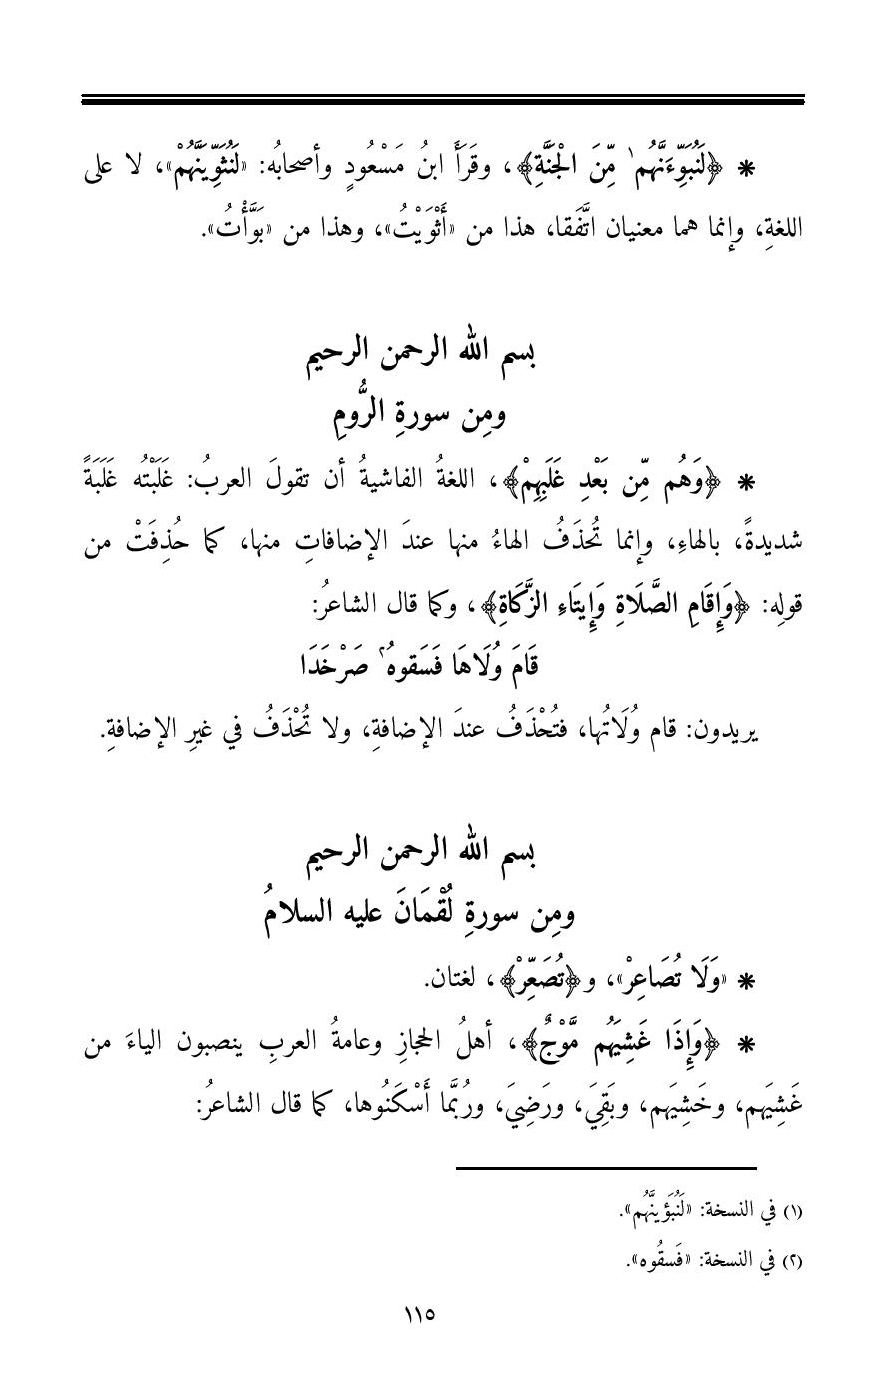 * ﴿لَنُبَوِّءَنَّهُم١ مِّنَ الْجَنَّةِ﴾، وقَرَأَ ابنُ مَسْعُودٍ وأصحابُه: «لَنُثَوِّيَنَّهُمْ»، لا على
اللغةِ، وإنما هما معنيان اتَّفَقا، هذا من «أَثْوَيْتُ»، وهذا من «بَوَّأْتُ».
بسم الله الرحمن الرحيم
ومِن سورةِ الرُّومِ
* ﴿وَهُم مِّن بَعْدِ غَلَبِهِمْ﴾، اللغةُ الفاشيةُ أن تقولَ العربُ: غَلَبْتُه غَلَبَةً
شديدةً، بالهاءِ، وإنما تُحذَفُ الهاءُ منها عندَ الإضافاتِ منها، كما حُذِفَتْ من
قولِه: ﴿وَإِقَامِ الصَّلَاةِ وَإِيتَاءِ الزَّكَاةِ﴾، وكما قال الشاعرُ:
قَامَ وُلَاهَا فَسَقوهُ٢ صَرْخَدَا
يريدون: قام وُلَاتُها، فتُحْذَفُ عندَ الإضافةِ، ولا تُحْذَفُ في غيرِ الإضافةِ.
بسم الله الرحمن الرحيم
ومِن سورةِ لُقْمَانَ عليه السلامُ
* «وَلَا تُصَاعِرْ»، و﴿تُصَعِّرْ﴾، لغتان.
* ﴿وَإِذَا غَشِيَهُم مَّوْجٌ﴾، أهلُ الحجازِ وعامةُ العربِ ينصبون الياءَ من
غَشِيَهم، وخَشِيَهم، وبَقِيَ، ورَضِيَ، ورُبَّما أَسْكَنُوها، كما قال الشاعرُ:
(١) في النسخة: «لَنُبَؤِينَّهُم».
(٢) في النسخة: «فَسقُوه».
١١٥